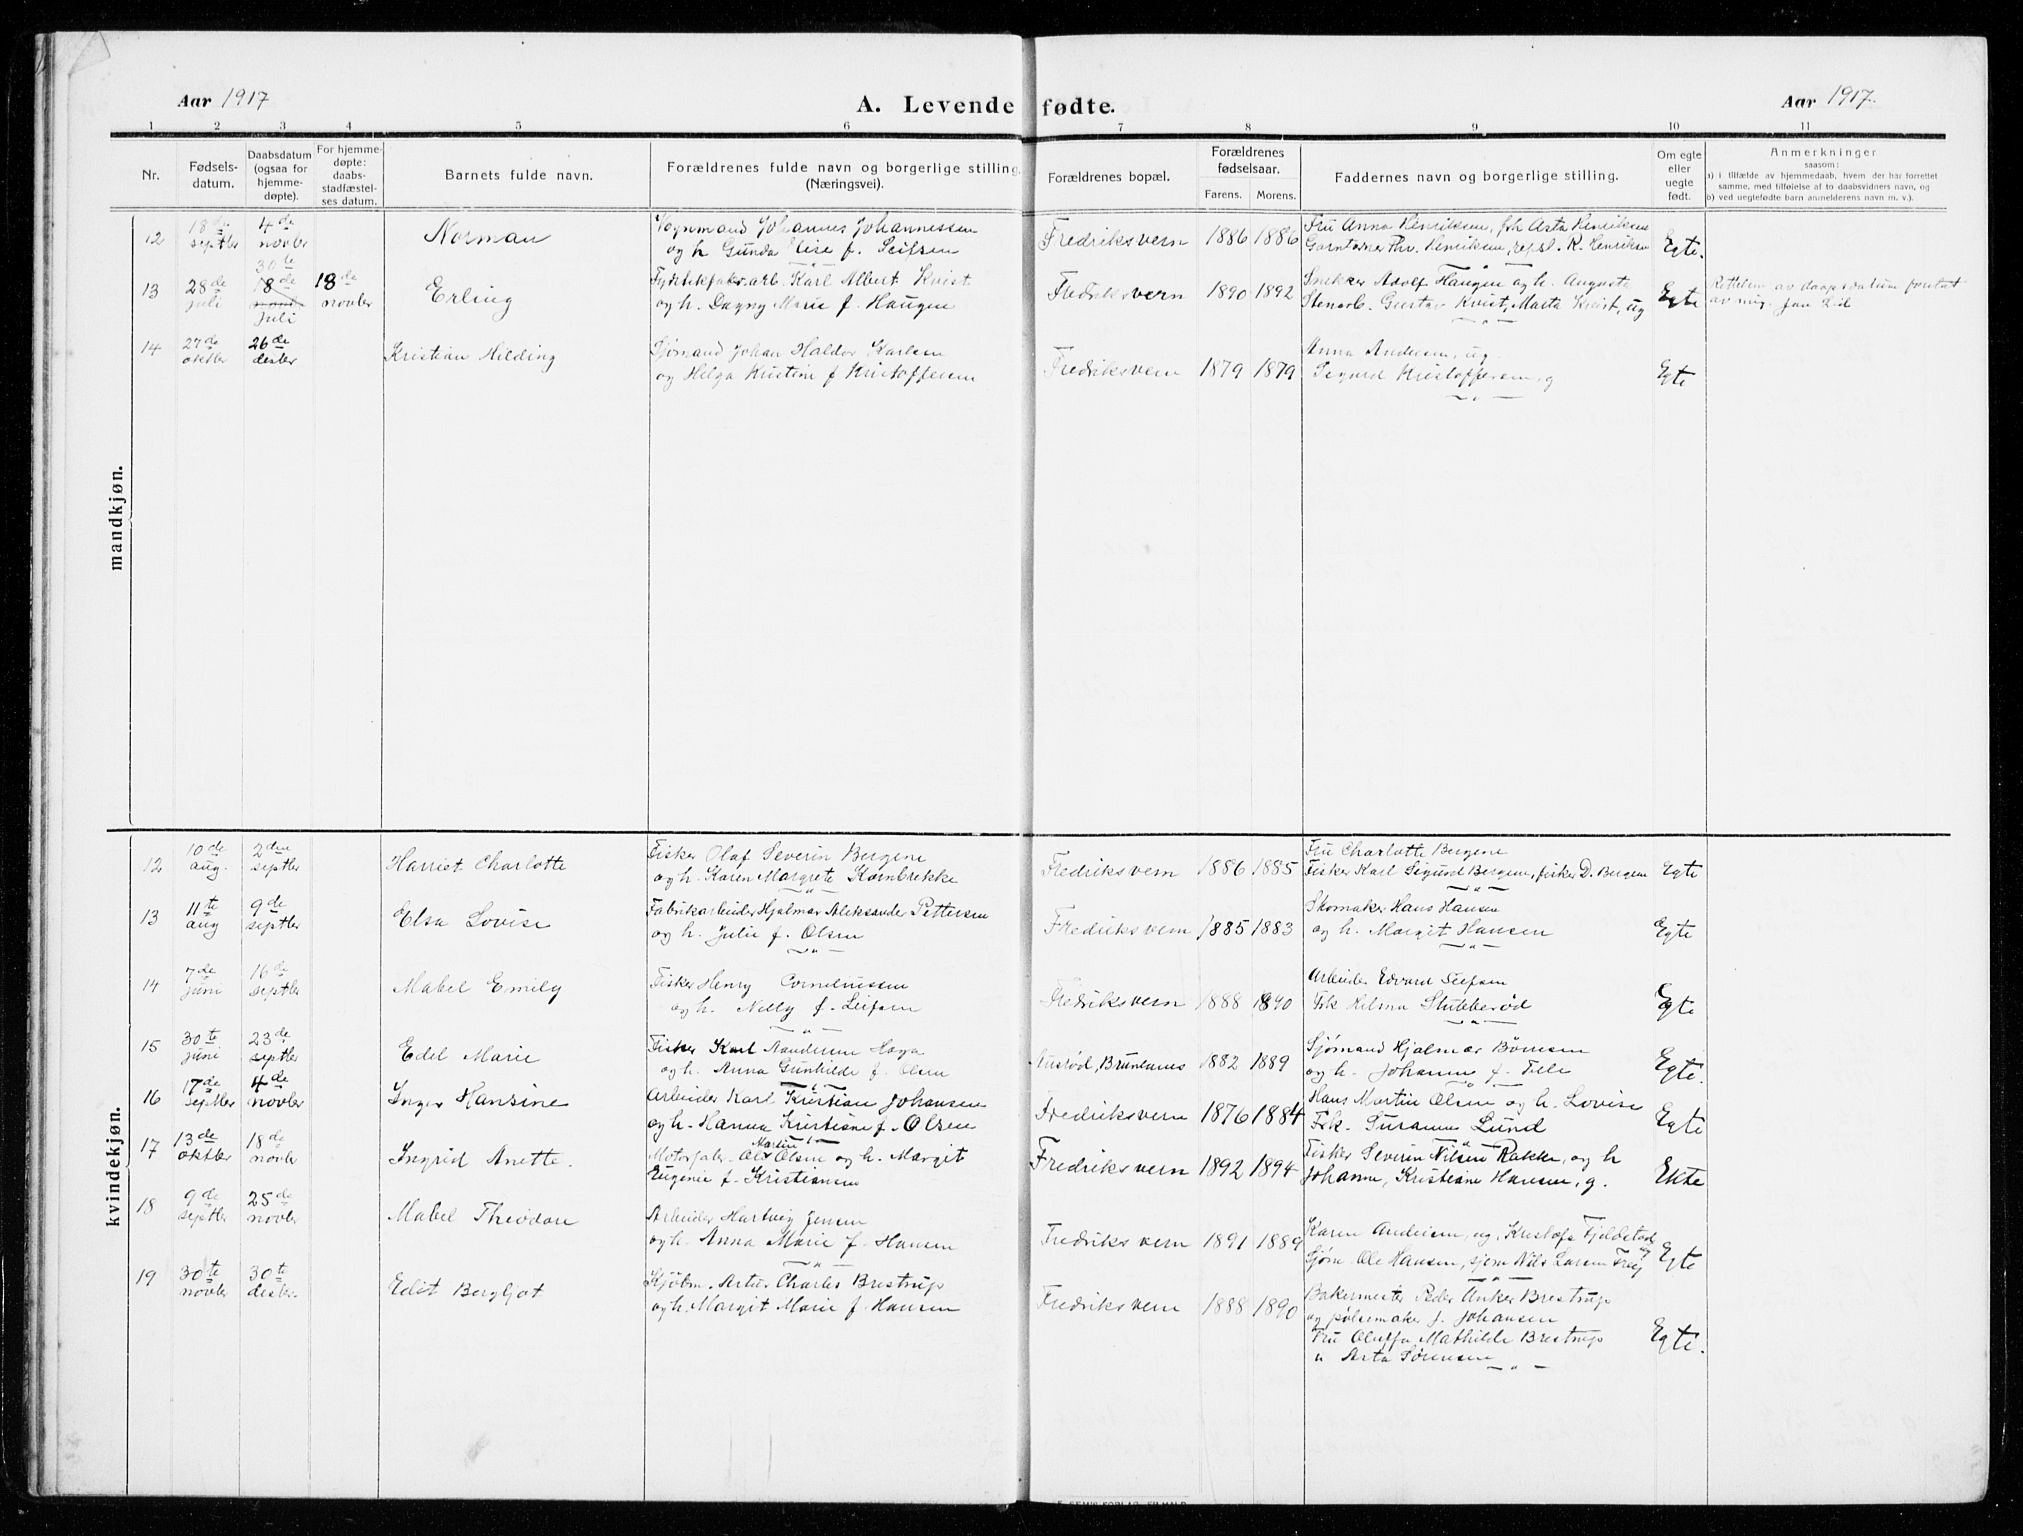 Aar 1917
A. Levende fødte.
Aar 1917.
1 2 3 4 5 6 7 8 9 10 11
Nr.
Fødsels-
datum.
Daabsdatum
(ogsaa for
hjemme-
døpte).
For hjemme-
døpte:
daabs-
stadfæstel-
ses datum.
Barnets fulde navn.
Forældrenes fulde navn og borgerlige stilling
(Næringsvei).
Forældrenes bopæl.
Forældrenes
fødselsaar.
Farens. Morens.
Faddernes navn og borgerlige stilling.
Om egte
eller
uegte
født.
Anmerkninger
saasom:
a) i tilfælde av hjemmedaab, hvem der har forrettet
samme, med tilføielse af to daabsvidners navn, og
b) ved uegtefødte barn anmelderens navn m. v.).
mandkjøn.
12
18de
septbr
4de
novbr
Norman
Vognmand Johannes Johannessen
og h Gunda Elise f. Leifsen
Fredriksvern
1886 1886
Fru Anna Henriksen, frk Asta Henriksen
Gartner Thv. Henriksen, repsl. R. Henriksen
Egte.
13
28de
juli
30te
18de
juli
18de
novbr
Erling
Karl Albert Kvist
og h. Dagny Marie f. Haugen
Fredriksvern
1890 1892
Snekker Adolf Haugen og h. Augusta
Stenarb. Gustav Kvist, Marta Kvist, ug
Egte
Rettelsen av daapsdatum foretat
av mig. Jan Lid
14
27de
oktbr
26de
desbr
Kristian Hilding
Sjømand Johan Haldor Karlsen
og Helga Kristine f Kristoffersen
Fredriksvern
1879 1879
Anna Andersen, ug.
Sigurd Kristoffersen, g
Egte
kvindekjøn.
12
10de
aug.
2den
septbr
Harriet Charlotte
Fisker Olaf Severin Bergene
og h. Karen Margrete Kornbrekke
Fredriksvern
1886 1885
Fru Charlotte Bergene
Fisker Karl Sigurd Bergene, fisker D. Bergene
Egte
13
11te
aug
9de
septbr
Elsa Lovise
Fabrikarbeider Hjalmar Aleksander Pettersen
og h. Julie f. Olsen
Fredriksvern
1885 1883
Skomaker Hans Hansen
og h. Margit Hansen
Egte
14
7de
juni
16de
septbr
Mabel Emily
Fisker Henry Corneliussen
og h. Nelly f. Leifsen
Fredriksvern
1888 1890
Arbeider Edvard Leifsen
Frk Hilma Stubberød
Egte
15
30te
juni
23de
septbr
Edel Marie
Fisker Karl Haga
og h. Anna Gunhilde f. Olsen
Brunlanes
1882 1889
Sjømand Hjalmar
og h. Johanne f.
Egte.
16
17de
septbr
4de
novbr
Inger Hansine
Arbeider Karl Kristian Johansen
og h. Hanna Kristiane f. Olsen
Fredriksvern
1876 1884
Hans Martin Olsen og h. Lovise
Frk. Susanne Lund
Egte
17
13de
oktbr
18de
novbr
Ingrid Anette.
Martin
Motorfabr. Olsen og h. Margit
Eugenie f. Kristiansen
Fredriksvern
1892 1894
Fisker Severin Nilsen Rakke, og h
Johanne, Kristiane Hansen, g.
Ekte
18
9de
septbr
25de
novbr
Mabel
Arbeider Hartvig Jensen
og h. Anna Marie f. Hansen
Fredriksvern
1891 1889
Karen Andersen, ug, Fjeldstad
Sjøm. Ole Hansen, sjøm Nils Larsen
Egte
19
30te
novbr
30te
desbr.
Edit Bergljot
Artur Charles Brestrup
og h. Margit Marie f. Hansen
Fredriksvern
1888 1890
Bakermester Peder Anker Brestrup
og pølsemaker J. Johansen
Fru Oluffa Mathilde Brestrup
u Asta Sørensen
Egte.